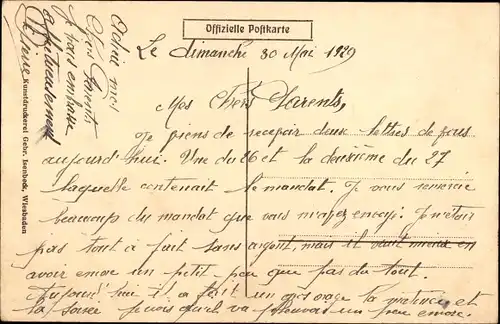 Offizielle Postkarte
Le dimanche 30 Mai 1929
Mes Chers Parents,
Je viens de recevoir deux lettres de vous
aujourd'hui. Une du 26 et la deuxième du 27
laquelle contenait le mandat. Je vous remercie
beaucoup du mandat que vous m'avez envoyé. Je n'étais
pas tout à fait sans argent, mais il vaut mieux en
avoir encore un petit peu que pas du tout.
Aujourd'hui il a fait un gros orage la matinée et
la soirée je crois qu'il va pleuvoir un peu encore.
Adieu mes
Chers Parents
Je vous embrasse
affectueusement
Kunstdruckerei Gebr. Isenbeck, Wiesbaden